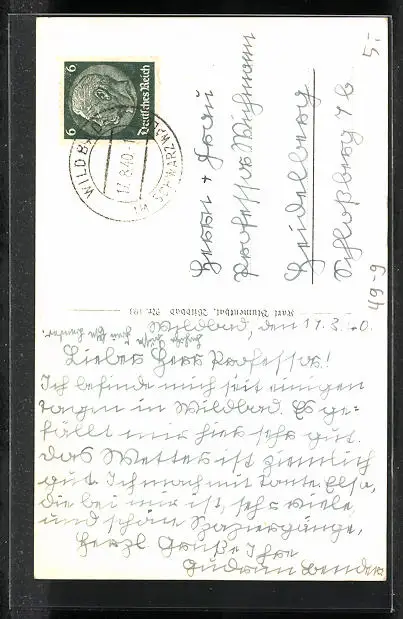 6 6
Deutsches Reich
WILDBAD
17.8.40.-1
SCHWARZWALD
5.-
Herrn + Frau
Professor
Heidelberg
Schloßberg 7b
49-9
Karl Blumenthal, Wildbad Nr. 193
Wildbad, den 17.8.40.
Lieber Herr Professor!
Ich befinde mich seit einigen
tagen in Wildbad. Es ge-
fällt mir hier sehr gut.
Das Wetter ist ziemlich
gut. Ich mach mit Tante Elsa,
die bei mir ist, sehr viele
und schöne Spaziergänge.
Herzl Grüße Ihre
Gudrun Bender